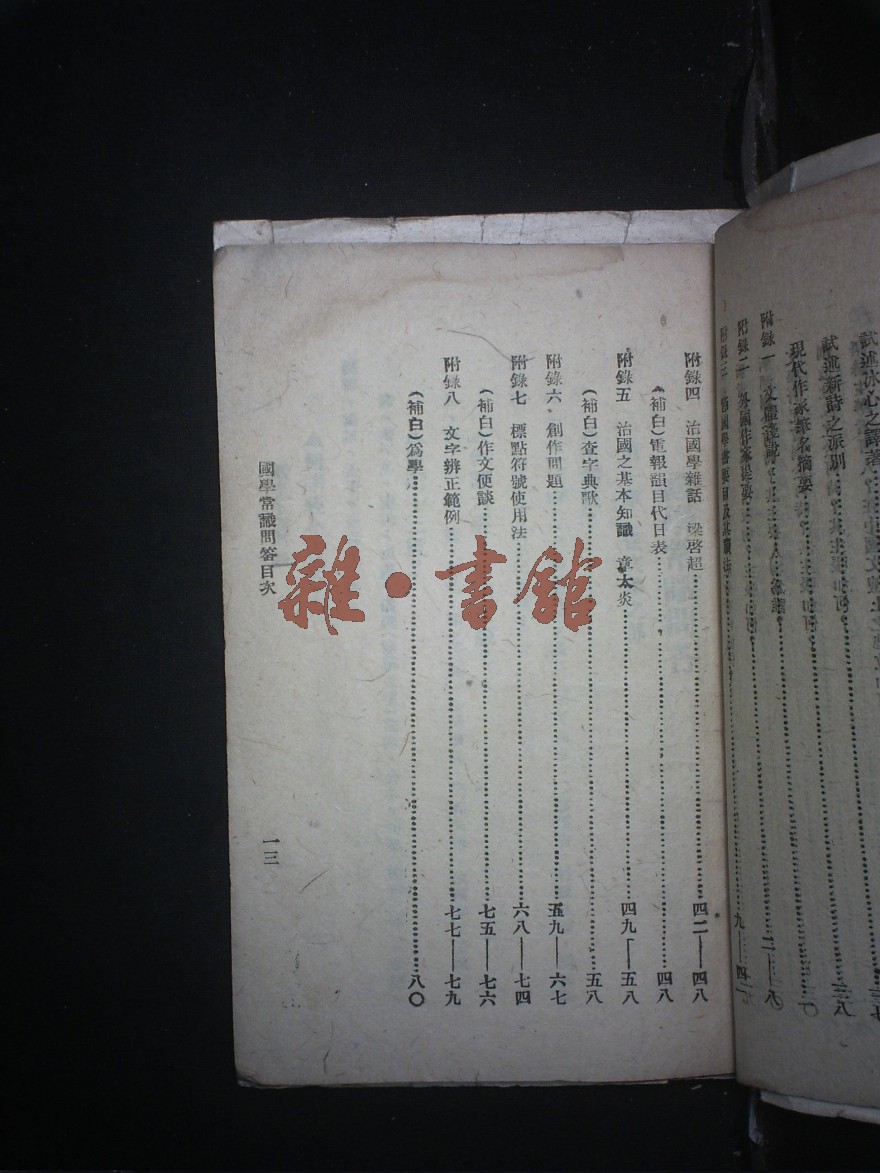 試述冰心之譯著
試述新詩之派別
現代作家筆名摘要
附錄一 文體淺說 二——八
附錄二 外國作家提要
附錄三
附錄四 治國學雜話 梁啓超………四二——四八
(補白)電報韻目代日表………四八
附錄五 治國之基本知識 章太炎………四九——五八
(補白)查字典歌………五八
附錄六 創作問題………五九——六七
附錄七 標點符號使用法………六八——七四
(補白)作文便談………七五——七六
附錄八 文字辨正範例………七七——七九
(補白)爲學………八〇
國學常識問答目次
一三
雜·書館